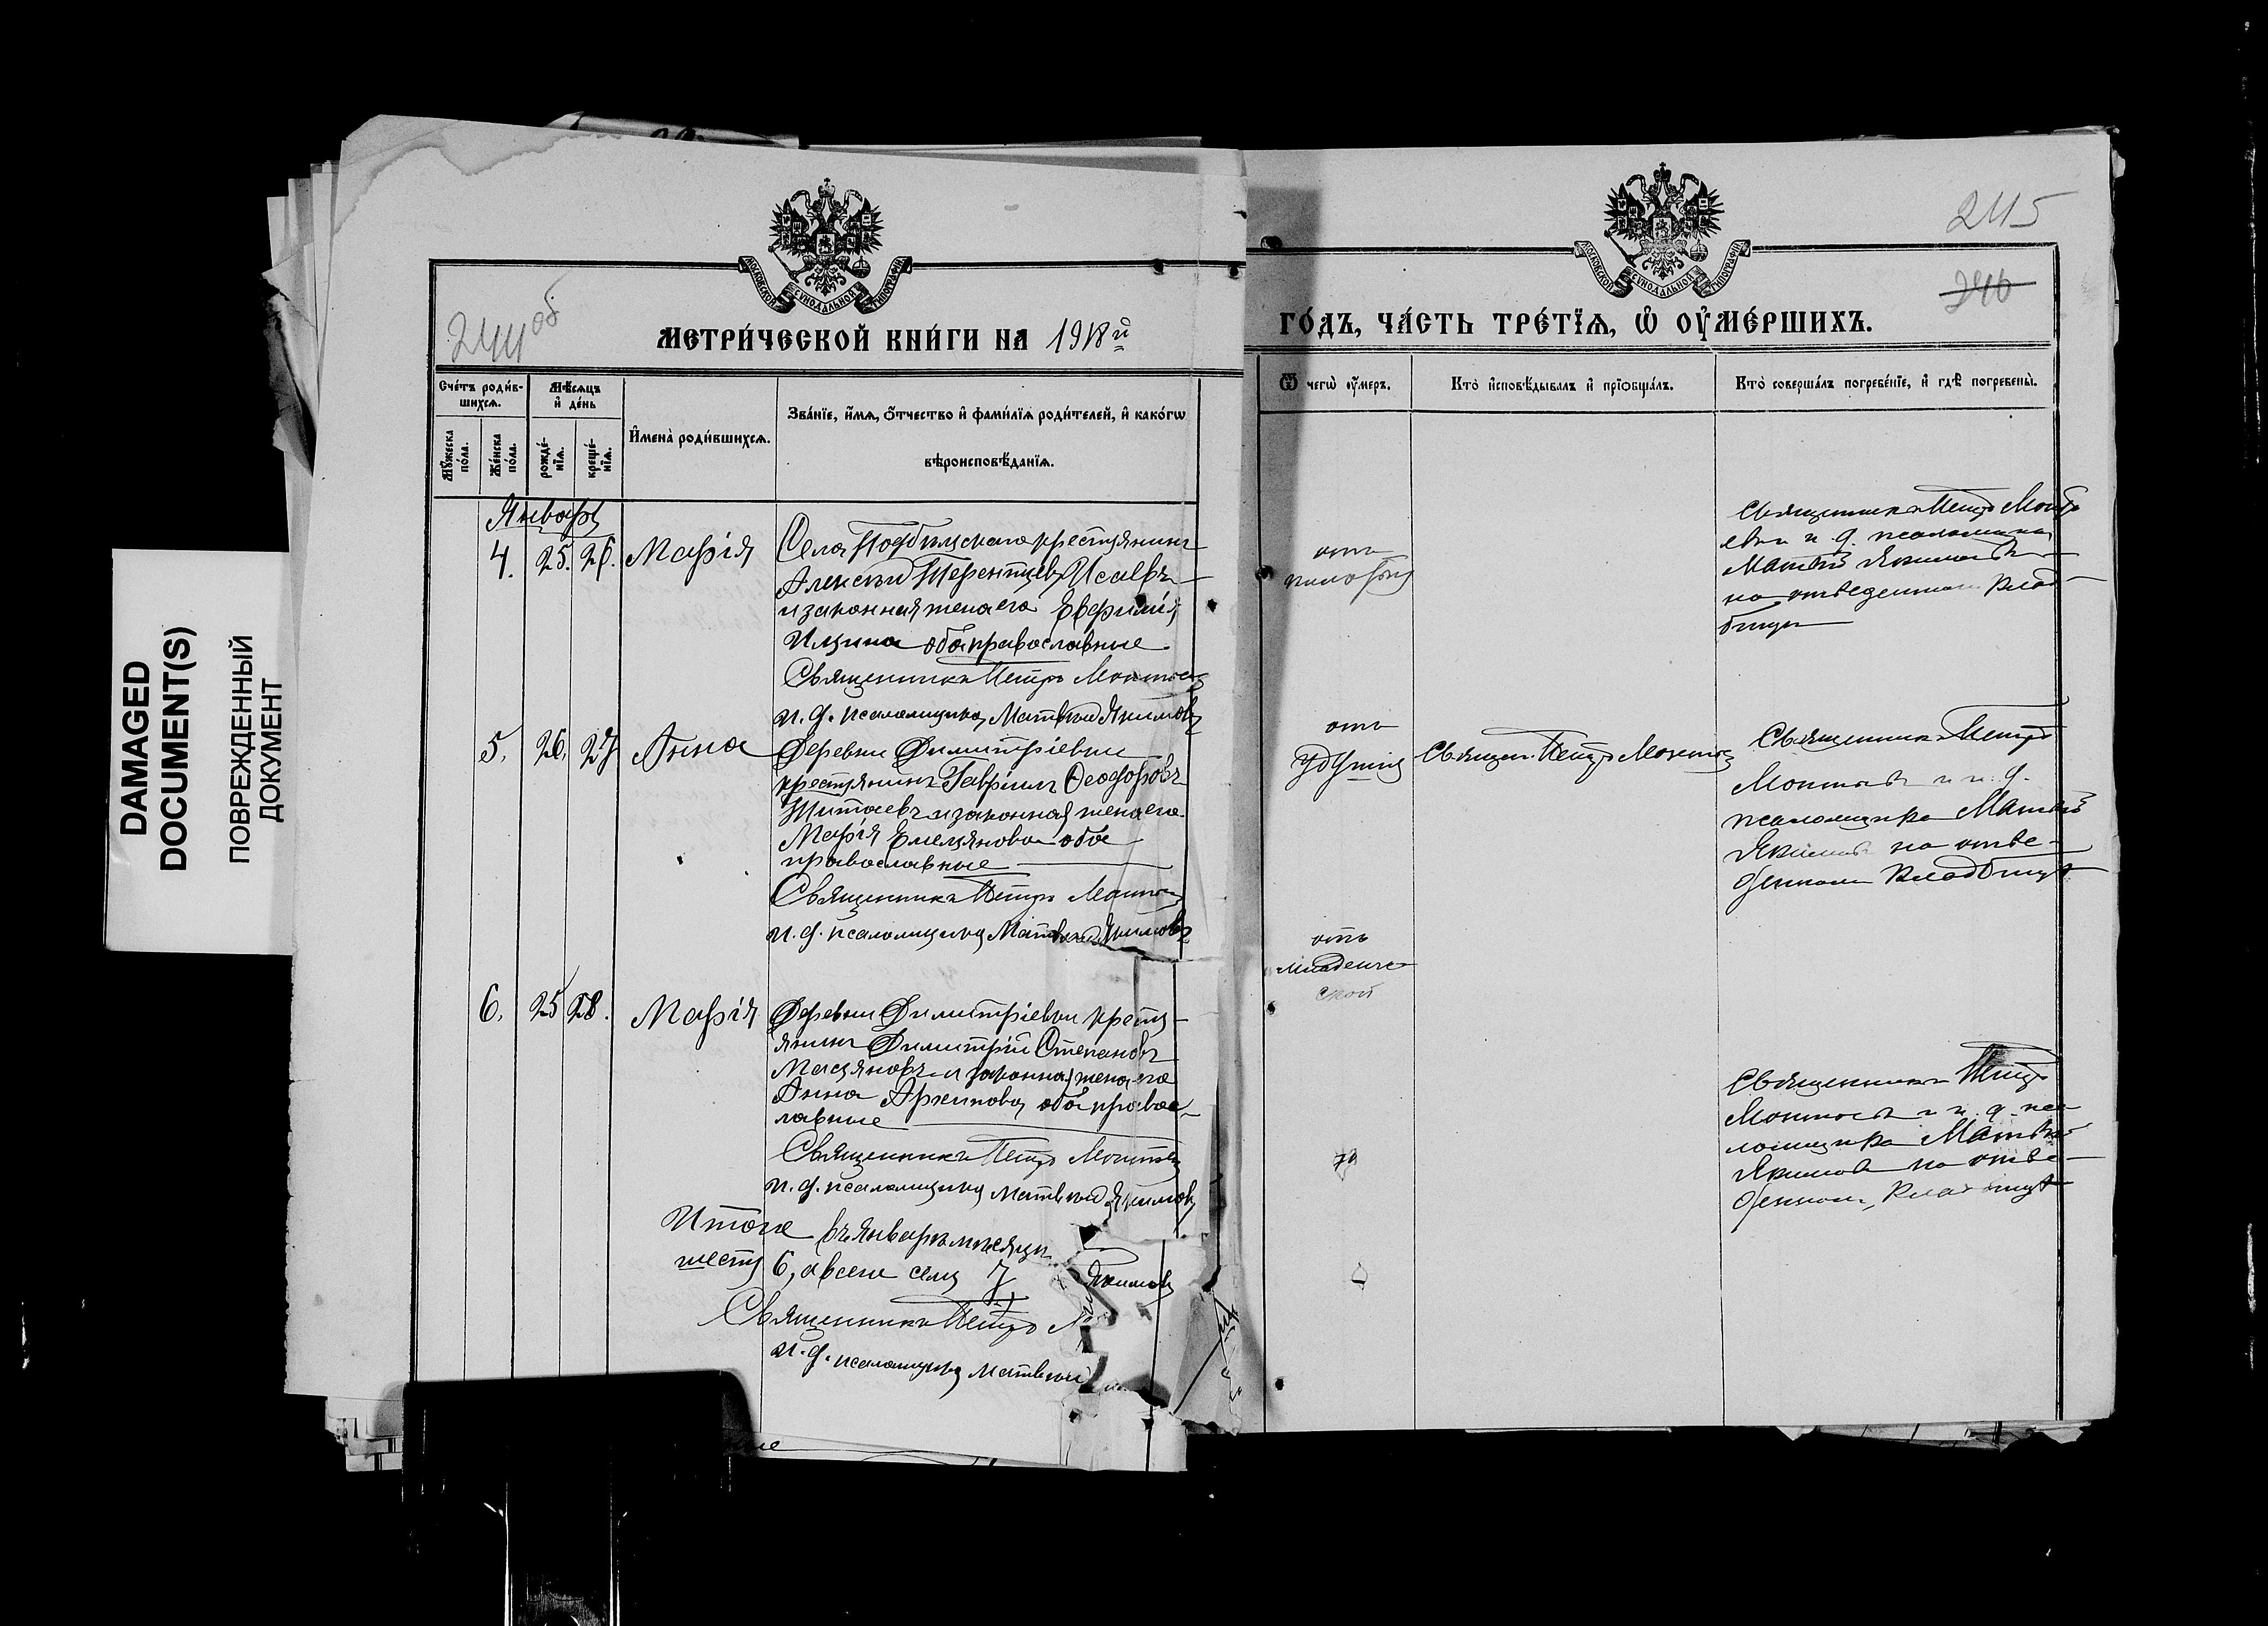 DAMAGED
DOCUMENT(S)
ПОВРЕЖДЕННЫЙ
ДОКУМЕНТ
МОСКОВСКОЙ СѴНОДАЛЬНОЙ ТИПОГРАФІИ
244 об
МЕТРИ́ЧЕСКОЙ КНИ́ГИ НА 1918 й
Сче́тъ роди́в-
шихсѧ.
Мꙋ́жеска
по́ла.
Же́нска
по́ла.
Мѣ́сѧцъ
и҆ де́нь
рожде́-
нїѧ.
креще́-
нїѧ.
И҆мена̀ роди́вшихсѧ.
Зва́нїе, и҆́мѧ, ѻ҆́тчество и҆ фами́лїѧ роди́телей, и҆ како́гѡ
вѣроисповѣ́данїѧ.
Январь
4. 25. 26. Марія Села Подбѣльскаго крестьянинъ
Алексѣй Терентьевъ Исаевъ
и законная жена его Евфимія
Ильина оба православные
Священникъ Петръ
и. д. псаломщика Матвѣй Якимовъ
5. 26. 27 Анна Деревни Димитріевки
крестьянинъ Гавріилъ Ѳеодоровъ
и законная жена его
Марія Емельянова оба
православные
Священникъ Петръ
и. д. псаломщика Матвѣй Якимовъ
6. 25 28. Марія Деревни Димитріевки кресть-
янинъ Димитрій Степановъ
и законная жена его
Анна Архипова оба правос-
лавные
Священникъ Петръ
и. д. псаломщика Матвѣй Якимовъ
Итого въ Январѣ мѣсяцѣ
шесть 6, а всего семь 7
Якимовъ
Священникъ Петръ
и. д. псаломщика Матвѣй
МОСКОВСКОЙ СѴНОДАЛЬНОЙ ТИПОГРАФІИ
245
246
ГО́ДЪ, ЧА́СТЬ ТРЕ́ТЇѦ, Ѡ҆ ОУ҆МЕ́РШИХЪ.
Ѿ чегѡ̀ ᲂу҆́меръ.
Кто̀ и҆сповѣ́дывалъ и҆ прїѻбща́лъ.
Кто̀ соверша́лъ погребе́нїе, и҆ гдѣ̀ погребены̀.
отъ
Священникъ Петръ
и. д. псаломщика
Матвѣй Якимовъ
на отведенномъ клад-
бищѣ
отъ
удушья
Священ. Петръ
Священникъ Петръ
и и. д.
псаломщика Матвѣй
Якимовъ на отве-
денномъ кладбищѣ
отъ
младенче
ской
Священникъ Петръ
и и. д. пса-
ломщика Матвѣй
Якимовъ на отве-
денномъ кладбищѣ